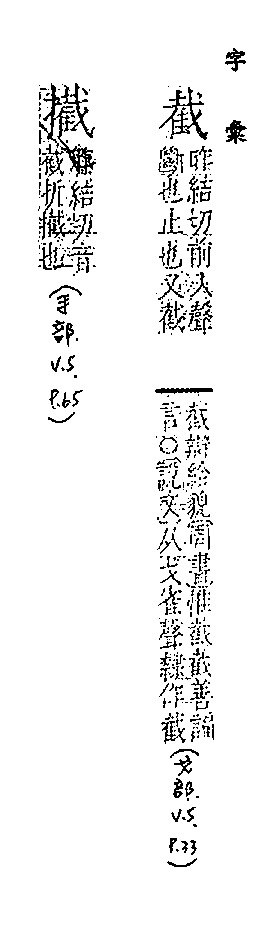 字彙
截
昨結切前入聲
斷也止也又截
截辯給貌周書惟截截善諞
言○說文从戈雀聲隸作截
(戈部. V.5. P.33)
擮
結切音
截折擮也
(手部. V.5. P.65)